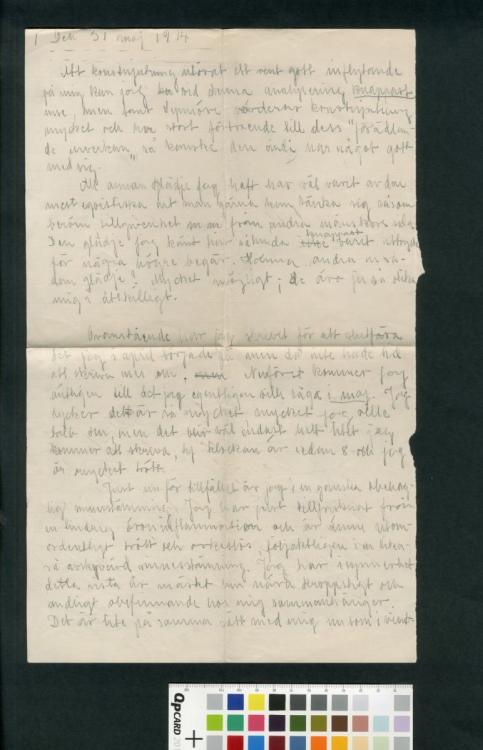 1 Den 31 maj 1914
Att konstnjutning utövat ett rent gott inflytande
på mig kan jag vid denna analysering knappast
inse, men tant Synnöve värderar konstnjutning
mycket och har stort förtroende till dess "förädlan-
de inverkan", så kanske den ändå har något gott
med sig.
All annan glädje jag haft har väl varit av den
mest egoistiska art man gärna kan tänka sig såsom
beröm tillgivenhet m.m. från andra människors sida.
Den glädje jag känt har sålunda knappast varit uttryck
för några högre begär. Känna andra en så-
dan glädje? Mycket möjligt; de äro ju så olika
mig i allt.
Ovanstående har jag skrivit för att slutföra
det jag i april började på men då inte hade tid
att skriva mer om. Nuförst kommer jag
äntligen till det jag egentligen ville säga i maj. Jag
tycker det är så mycket mycket jag ville
tala om, men det blir väl endast helt litet jag
kommer att skriva, ty klockan är redan 8 och jag
är mycket trött.
Just nu för tillfället är jag i en ganska obehag-
lig sinnesstämning. Jag har just tillfrisknat från
en öroninflammation och är ännu utom-
ordentligt trött och orkeslös, följaktligen i en
sinnesstämning. Jag har i synnerhet
detta sista år märkt hur nära kroppsligt och
andligt obefinnande hos mig sammanhänger.
Det är lite på samma sätt med mig nu som i